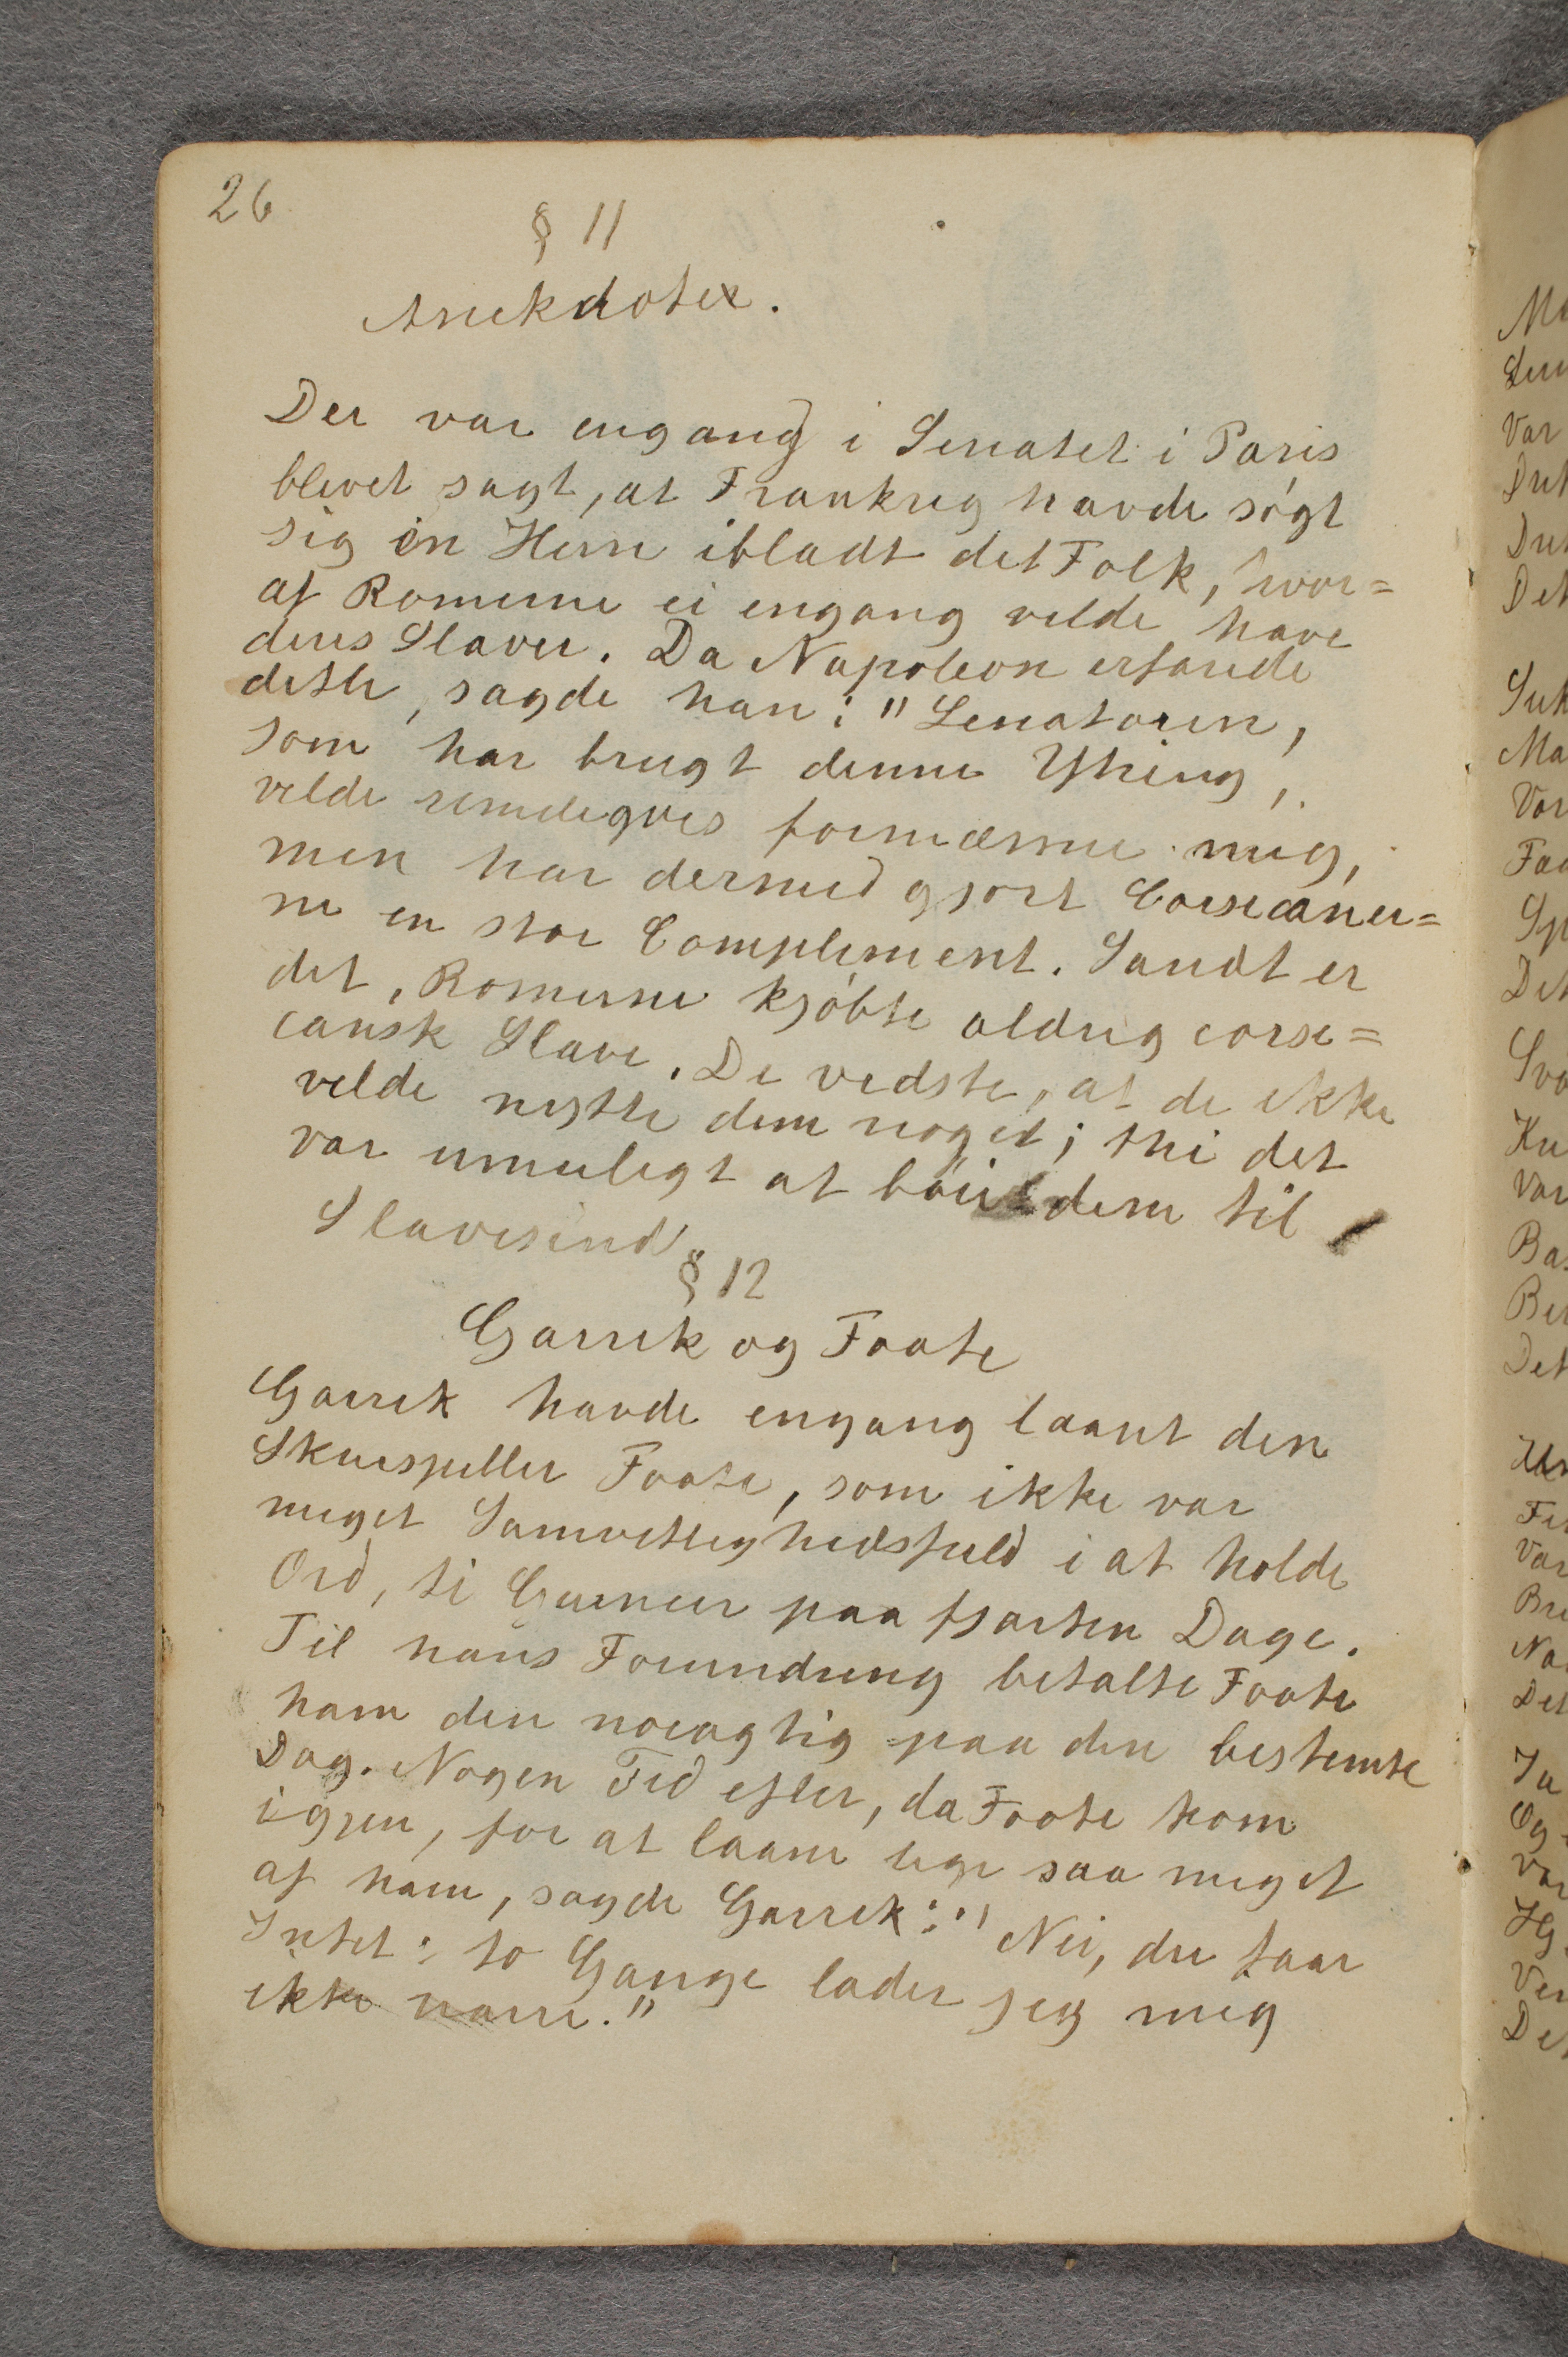 26
§ 11
Anekdoter.
Der var engang i Senatet i Paris
blevet sagt, at Frankrig havde søgt
sig en Herre iblandt det Folk, hvor=
af Romerne ei engang vilde have
deres Slaver. Da Napoleon erfarede
dette, sagde han: "Senatoren,
som har brugt denne Ytring,
vilde rimeligvis fornærme mig,
men har dermed gjort Corsicaner=
ne en stor Compliment. Sandt er
det, Romerne kjøbte aldrig corsi=
cansk Slave. De vidste, at de ikke
vilde nytte dem noget; thi det
var umuligt at bøie dem til
Slavesind
§ 12
Garrik og Foote
Garrik havde engang laant den
Skuespiller Foote, som ikke var
meget Samvittighedsfuld i at holde
Ord, ti Guineer paa fjorten Dage.
Til hans Forundring betalte Foote
ham den nøiagtig paa den bestemte
Dag. Nogen Tid efter, da Foote kom
igjen, for at laane lige saa meget
af ham, sagde Garrik: "Nei, du faar
Intet: to Gange lader jeg mig
ikke narre."
Ma
Var
Det
Ma
Var
Faa
Sp
Det
Var
Det
Var
Det
Ja
Og
Var